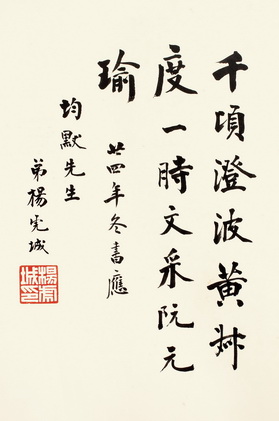 千頃澄波黃叔
度一時文采阮元
瑜
廿四年冬書應
均默先生
弟楊虎城
楊虎城印